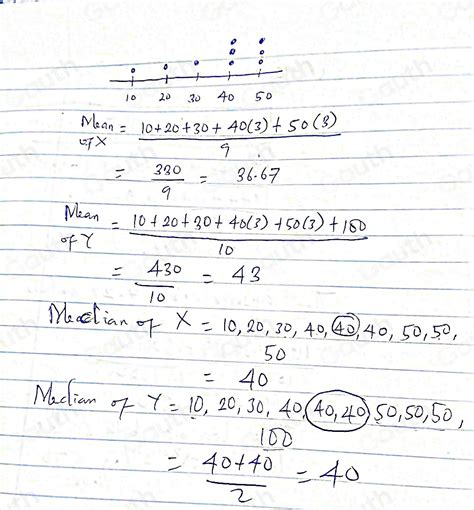 10 20 30 40 50
Mean of X = 10+20+30+40(3)+50(3) / 9
= 330 / 9 = 36.67
Mean of Y = 10+20+30+40(3)+50(3)+100 / 10
= 430 / 10 = 43
Median of X = 10, 20, 30, 40, 40, 40, 50, 50,
50
= 40
Median of Y = 10, 20, 30, 40, 40, 40, 50, 50, 50,
100
= 40+40 / 2 = 40